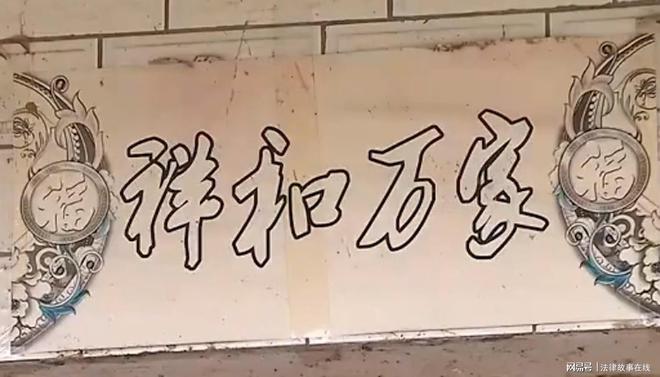 祥和万家
福 福
网易号 | 法律故事在线